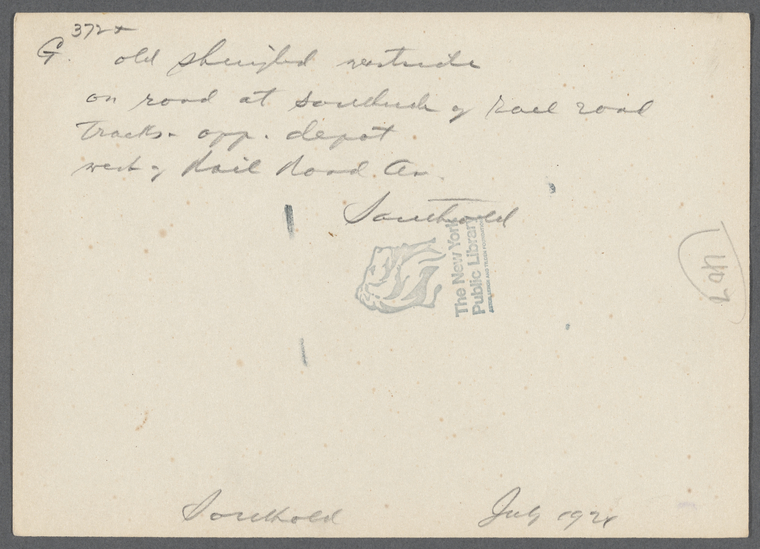 G. 372+
old shingled
on road at of rail road
tracks - opp. depot
west of Rail Road. Av.
Southold
The New York
Public Library
467
Southold July 192